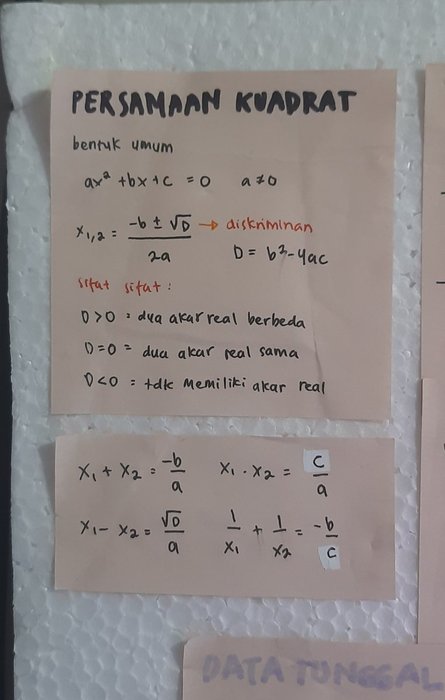 PERSAMAAN KUADRAT
bentuk umum
ax² + bx + c = 0 a ≠ 0
x₁,₂ = (-b ± √D)/2a → diskriminan
D = b² - 4ac
sifat sifat :
D>0 = dua akar real berbeda
D=0 = dua akar real sama
D<0 = tdk memiliki akar real
x₁ + x₂ = -b/a x₁ . x₂ = c/a
x₁ - x₂ = √D/a 1/x₁ + 1/x₂ = -b/c
DATA TUNGGAL